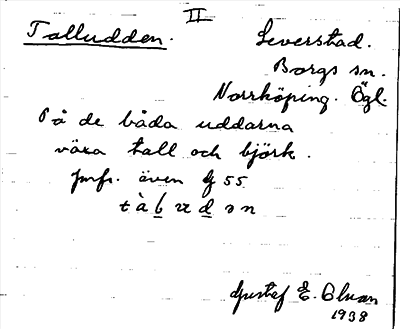 II
Talludden. Leverstad.
Borgs sn.
Norrköping. Ögl.
På de båda uddarna
växa tall och björk.
jmfr. även 55
Gustaf E.
1938